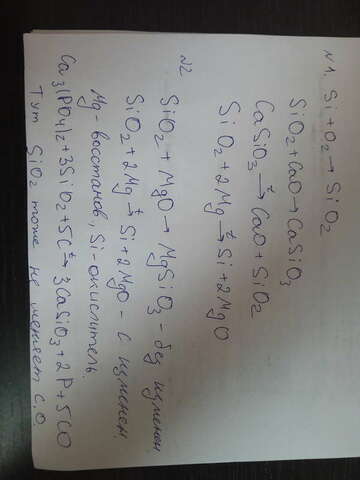 №1. Si + O₂ → SiO₂
SiO₂ + CaO → CaSiO₃
CaSiO₃ →ᵗ CaO + SiO₂
SiO₂ + 2Mg →ᵗ Si + 2MgO
№2
SiO₂ + MgO → MgSiO₃ - без изменен.
SiO₂ + 2Mg →ᵗ Si + 2MgO - с изменен.
Mg - восстанов, Si - окислитель.
Ca₃(PO₄)₂ + 3SiO₂ + 5C →ᵗ 3CaSiO₃ + 2P + 5CO
Тут SiO₂ тоже не меняет С.О.